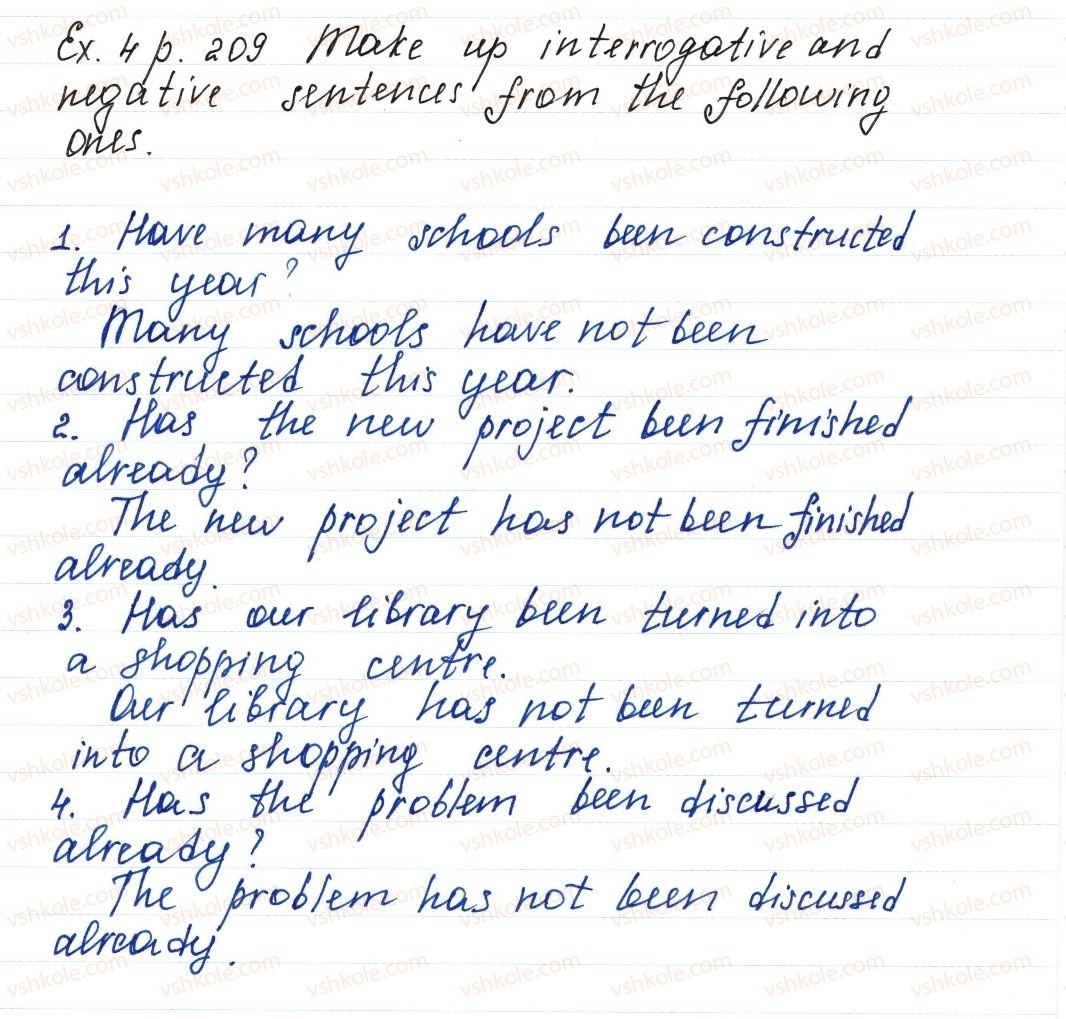 Ex. 4 p. 209 Make up interrogative and
negative sentences from the following
ones.
1. Have many schools been constructed
this year?
Many schools have not been
constructed this year.
2. Has the new project been finished
already?
The new project has not been finished
already.
3. Has our library been turned into
a shopping centre.
Our library has not been turned
into a shopping centre.
4. Has the problem been discussed
already?
The problem has not been discussed
already.